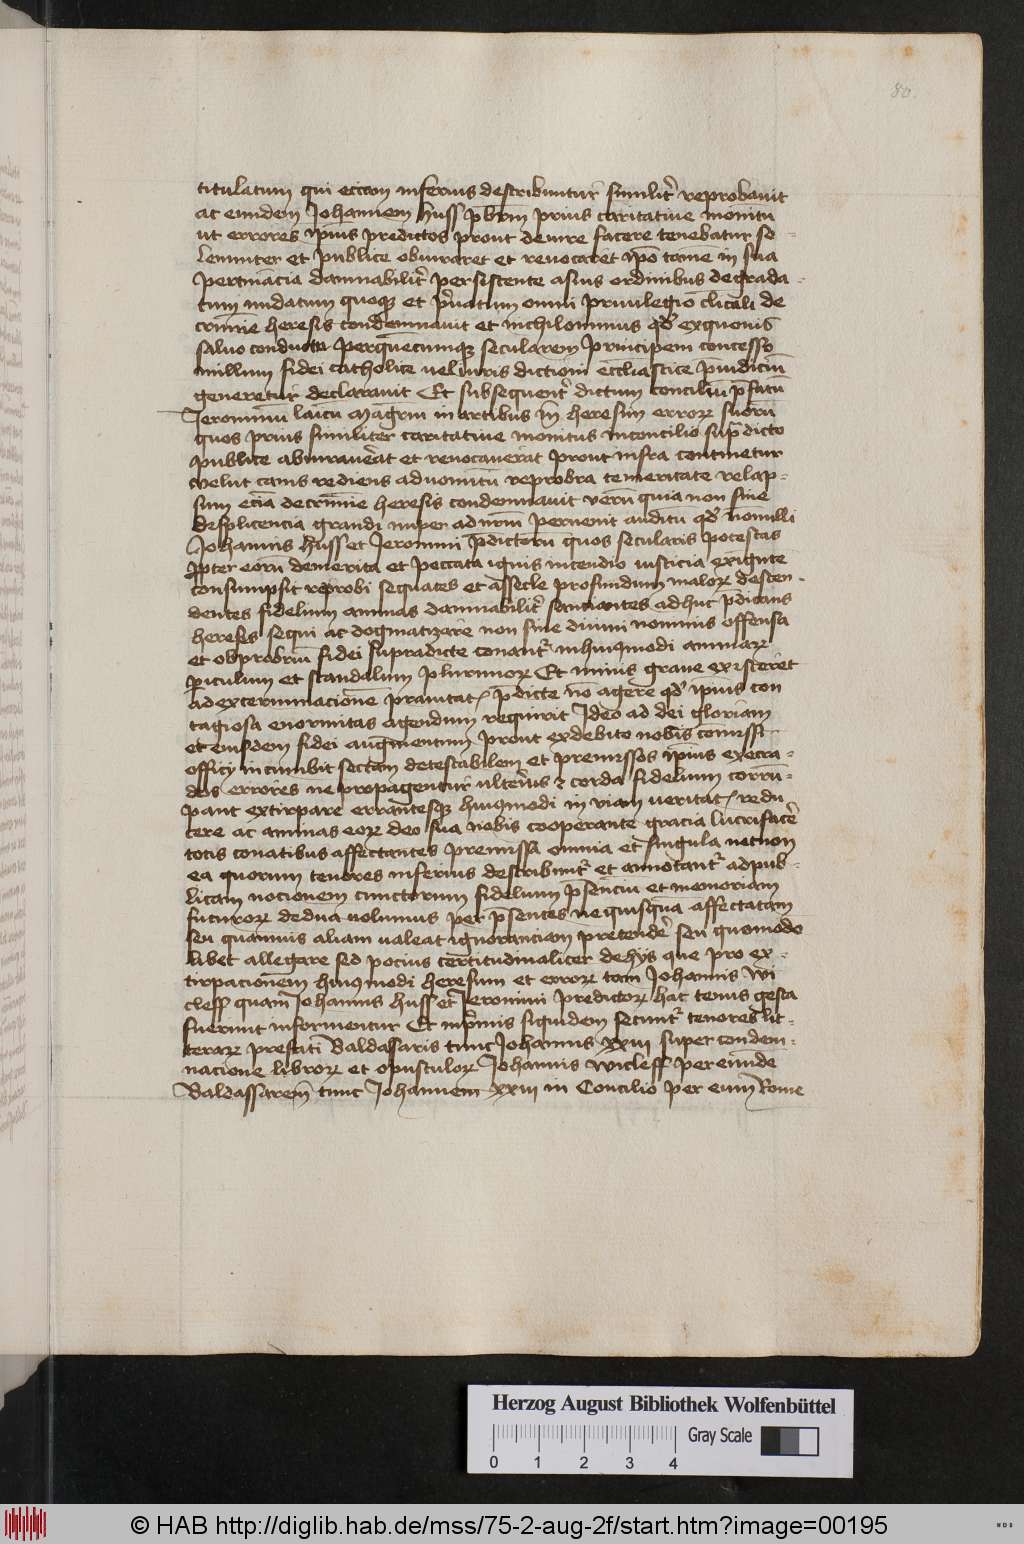 80.
titulatum qui eciam inferius describuntur similit' reprobauit
ac eundem Johannem Huss pbrm prius caritatiue monitu
ut errores ipius predictos prout de iure facere tenebatur so-
lenniter et publice obiuraret et reuocaret ipo tame in sua
pertinacia damnabilit' persistente a suis ordinibus degrada-
tum nudatum quoque et priuatum omni priuilegio clicali de
crimie heresis condemnauit et nichilominus qd ex quouis
saluo conductu per quecumque secularem principem concesso
nullum fidei catholice uel iuris dictioni eccliastice piudiciu
generetur declarauit Et subsequent' dictum conciliu pfatu
Jeronimu laicu Magrm in artibus in heresim error suoru
quos prius similiter caritatiue monitus in concilio supdicto
publice abiurauerat et reuocauerat prout infra continetur
velut canis rediens ad uomitu reprobra temeritate relap-
sum ecia de crimie heresis condemnauit veru quia non sine
desplicencia grandi nuper ad nrm peruenit auditu qd nonnulli
Johannis Huss et Jeronimi pdictoru quos secularis potestas
ppter eoru demerita et peccata ignis incendio iusticia exigente
consumpsit reprobi sequaces et assecle profundum malor descen-
dentes fidelium animas damnabilit' sauciantes ad huc pdictas
hereses sequi ac dogmatizare non sine diuini nominis offensa
et obprobrium fidei supradicte conant' in huiusmodi animar
piculum et scandalum plurimor Et nimis graue existeret
ad exterminacione prauitat pdicte no agere qd ipius con
tagiosa enormitas agendum requirit Ideo ad dei gloriam
et eiusdem fidei augmentum prout ex debito nobis comissi
officy incumbit sectam detestabilem et premissos ipius execra-
dos errores ne propagentur ulterius & corda fidelium corru-
pant extirpare errantesque huiusmodi in viam ueritat redu
cere ac animas eor deo sua nobis cooperante gracia lucrifacere
totis conatibus affectantes premissa omnia et singula necnon
ea quorum tenores inferius describunt' et annotant' ad pub-
licam nocionem cunctorum fidelium psenciu et memoriam
futuror dedua uolumus per psentes ne quisqua affectatam
seu quamuis aliam ualeat ignoranciam pretendere seu quomodo
libet allegare sed pocius certitudinaliter de hys que pro ex-
tirpacionem huiusmodi heresum et error tam Johannis Wi
cleff quam Johannis Huss et Jeronimi predictor hac tenus gesta
fuerunt informentur Et inprimis siquidem secunt' tenores lit-
terar prefati Baldassaris tunc Johannis XXIII super condem-
nacione libror et opusculor Johannis Wicleff per eunde
Baldassarem tunc Johannem XXIII in Concilio per eum Rome
Herzog August Bibliothek Wolfenbüttel
Gray Scale
0 1 2 3 4
© HAB http://diglib.hab.de/mss/75-2-aug-2f/start.htm?image=00195